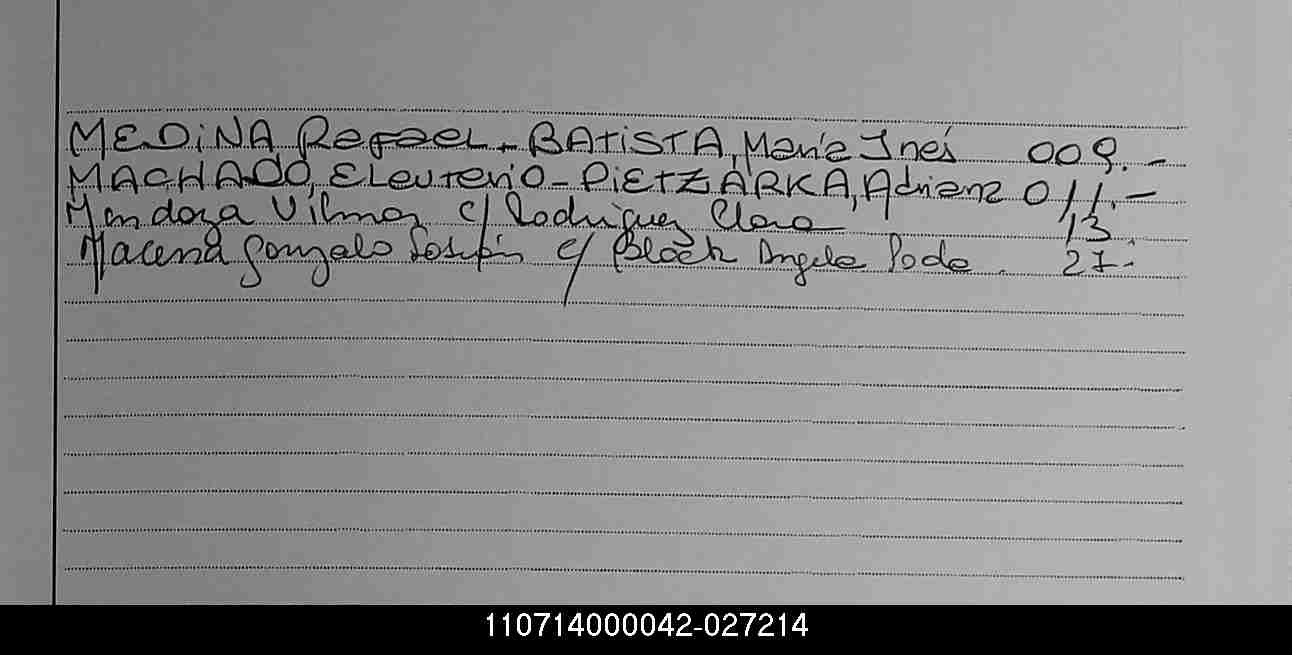 MEDINA, Rafael - BATISTA, María Inés 009.-
MACHADO, Eleuterio - PIETZARKA, Adriana 011.-
Mendoza Vilmar c/ Rodriguez Clara 13.
Macena Gonzalo c/ Block Angela 27.-
110714000042-027214